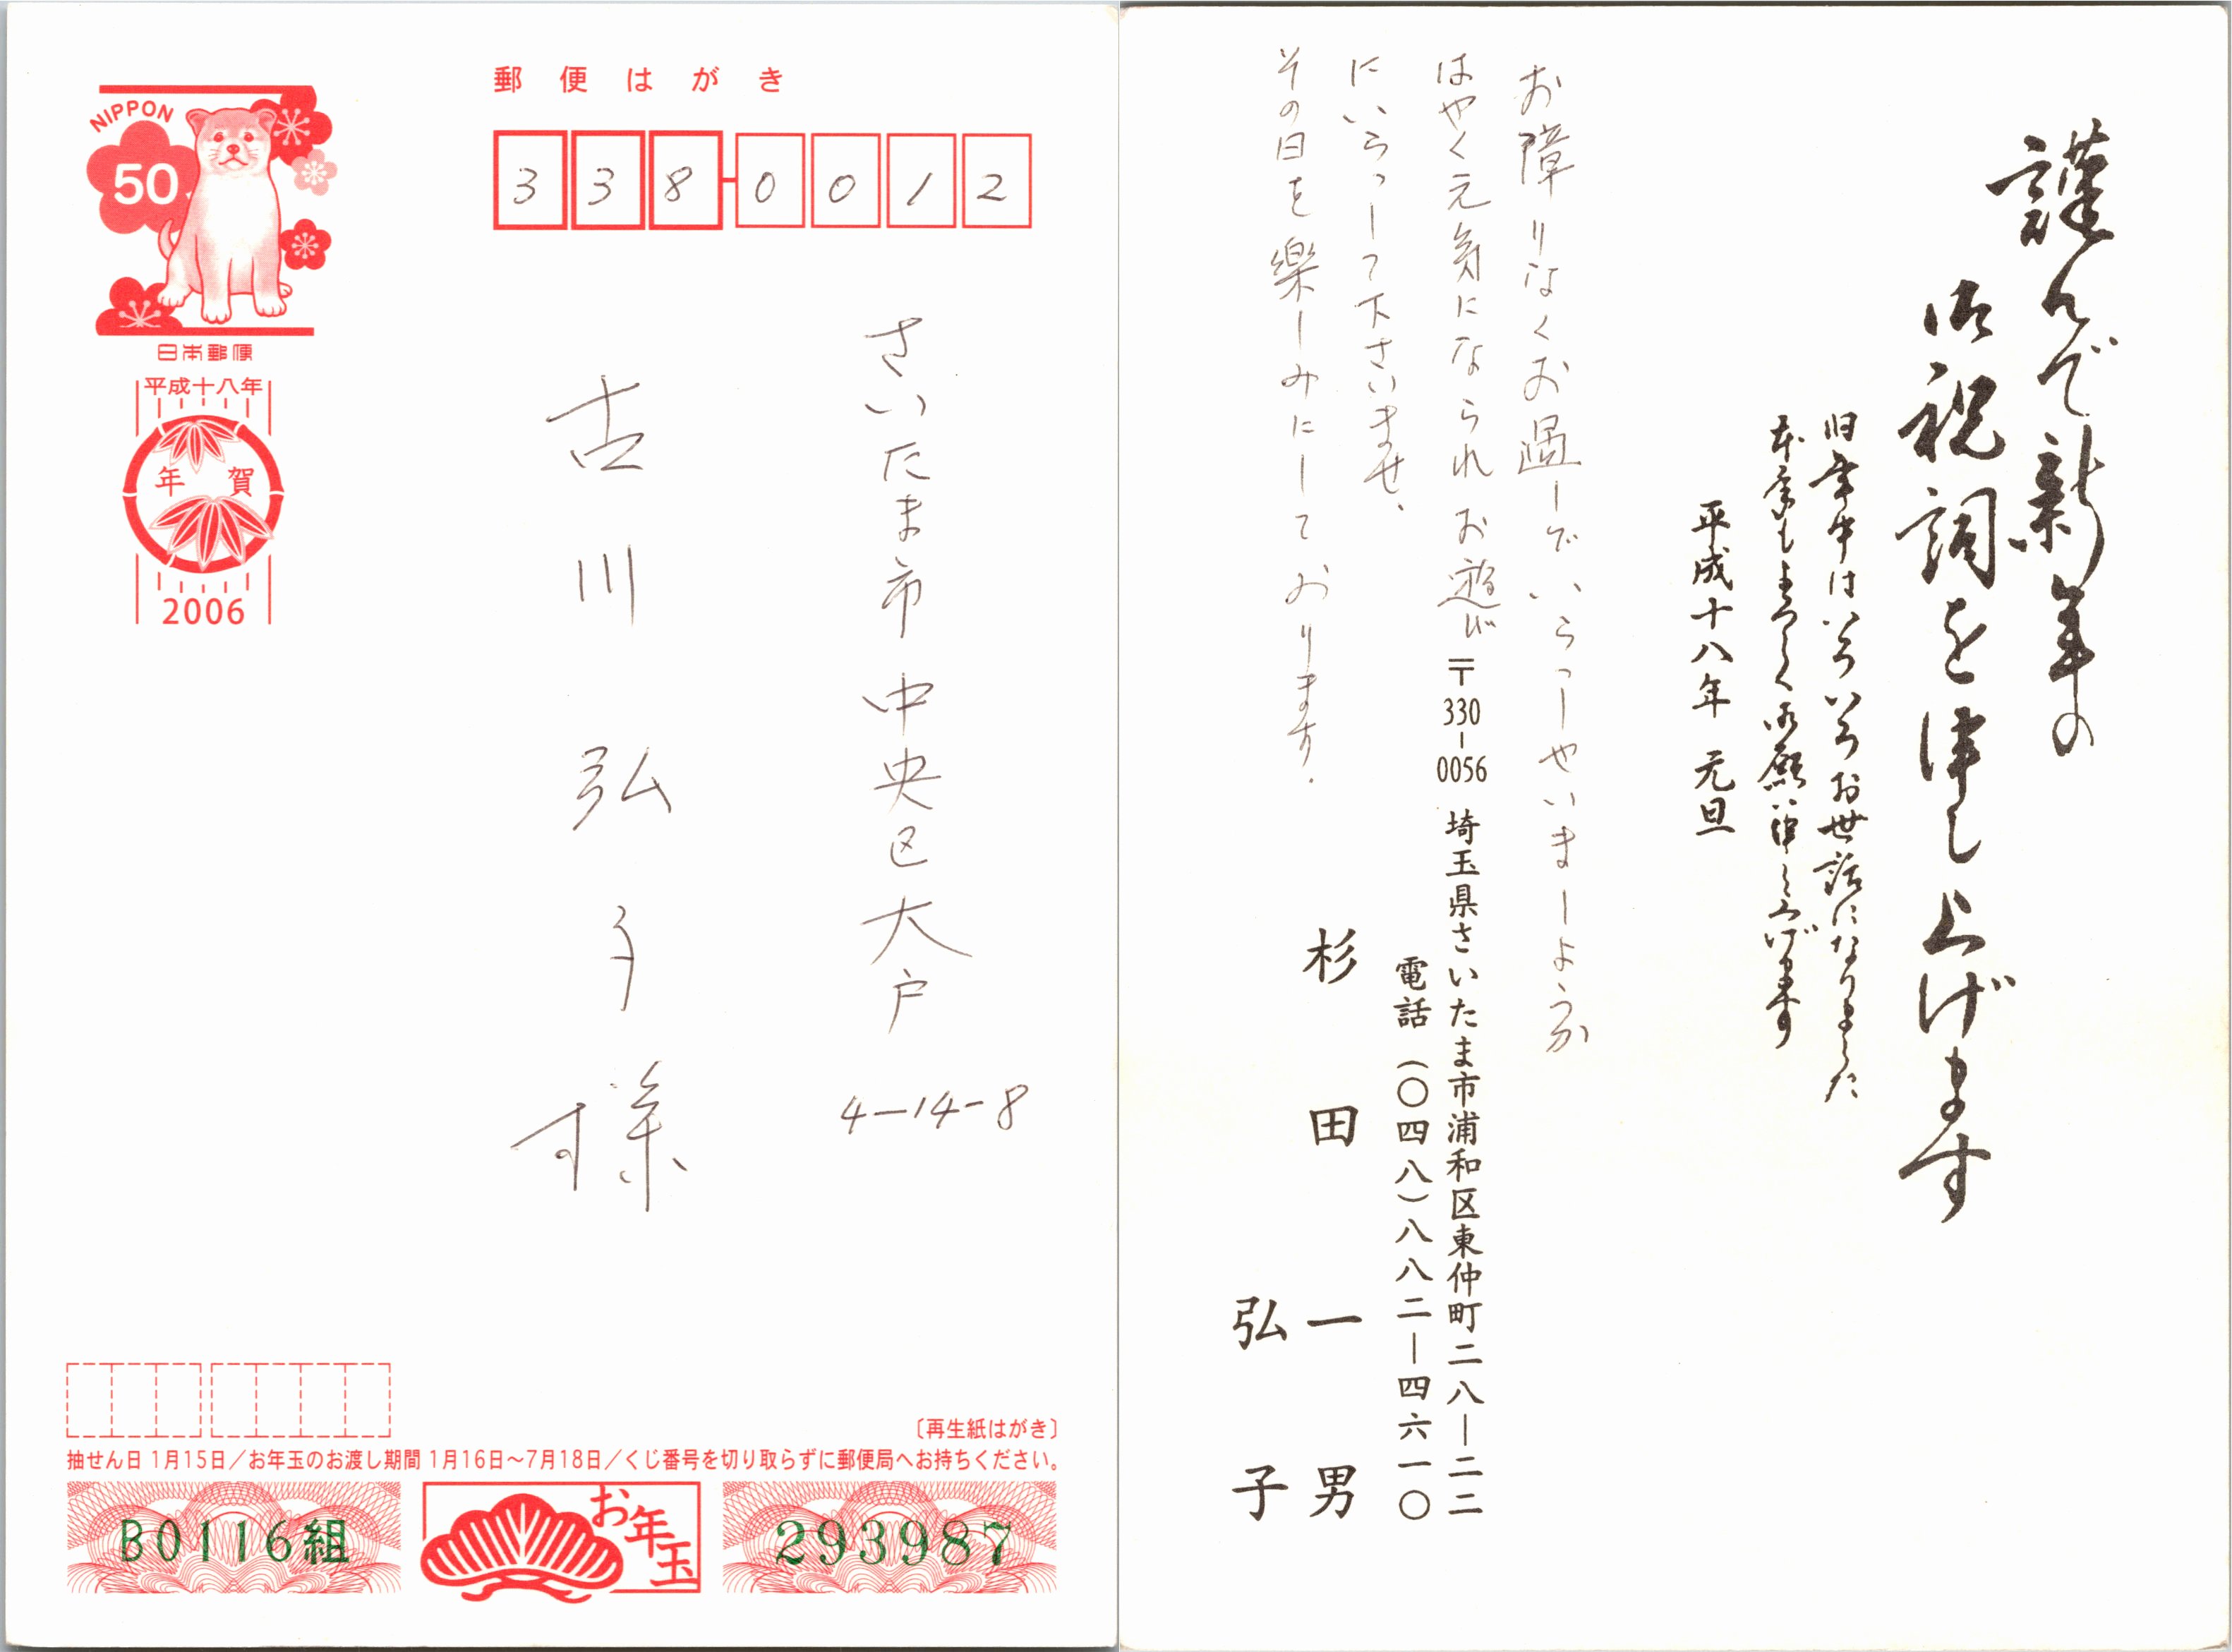 郵便はがき
NIPPON
50
日本郵便
平成十八年
年賀
2006
338-0012
さいたま市中央区大戸
4-14-8
古川弘子様
〔再生紙はがき〕
抽せん日 1月15日／お年玉のお渡し期間 1月16日～7月18日／くじ番号を切り取らずに郵便局へお持ちください。
B0116組
お年玉
293987
謹んで新年の
御祝詞を申し上げます
旧年中はいろいろお世話になりました
本年もよろしく御願い申し上げます
平成十八年 元旦
お障りなくお過しでいらっしゃいましょうか
はやく元気になられお遊び
にいらっして下さいませ、
その日を楽しみにしております.
〒330-0056 埼玉県さいたま市浦和区東仲町二八－二二
電話（〇四八）八八二－四六一〇
杉田一男
弘子